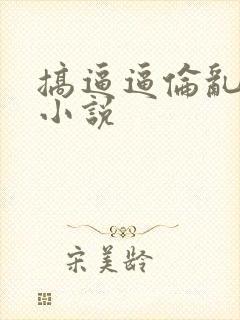 搞逼逼倫亂
小説
宋美龄